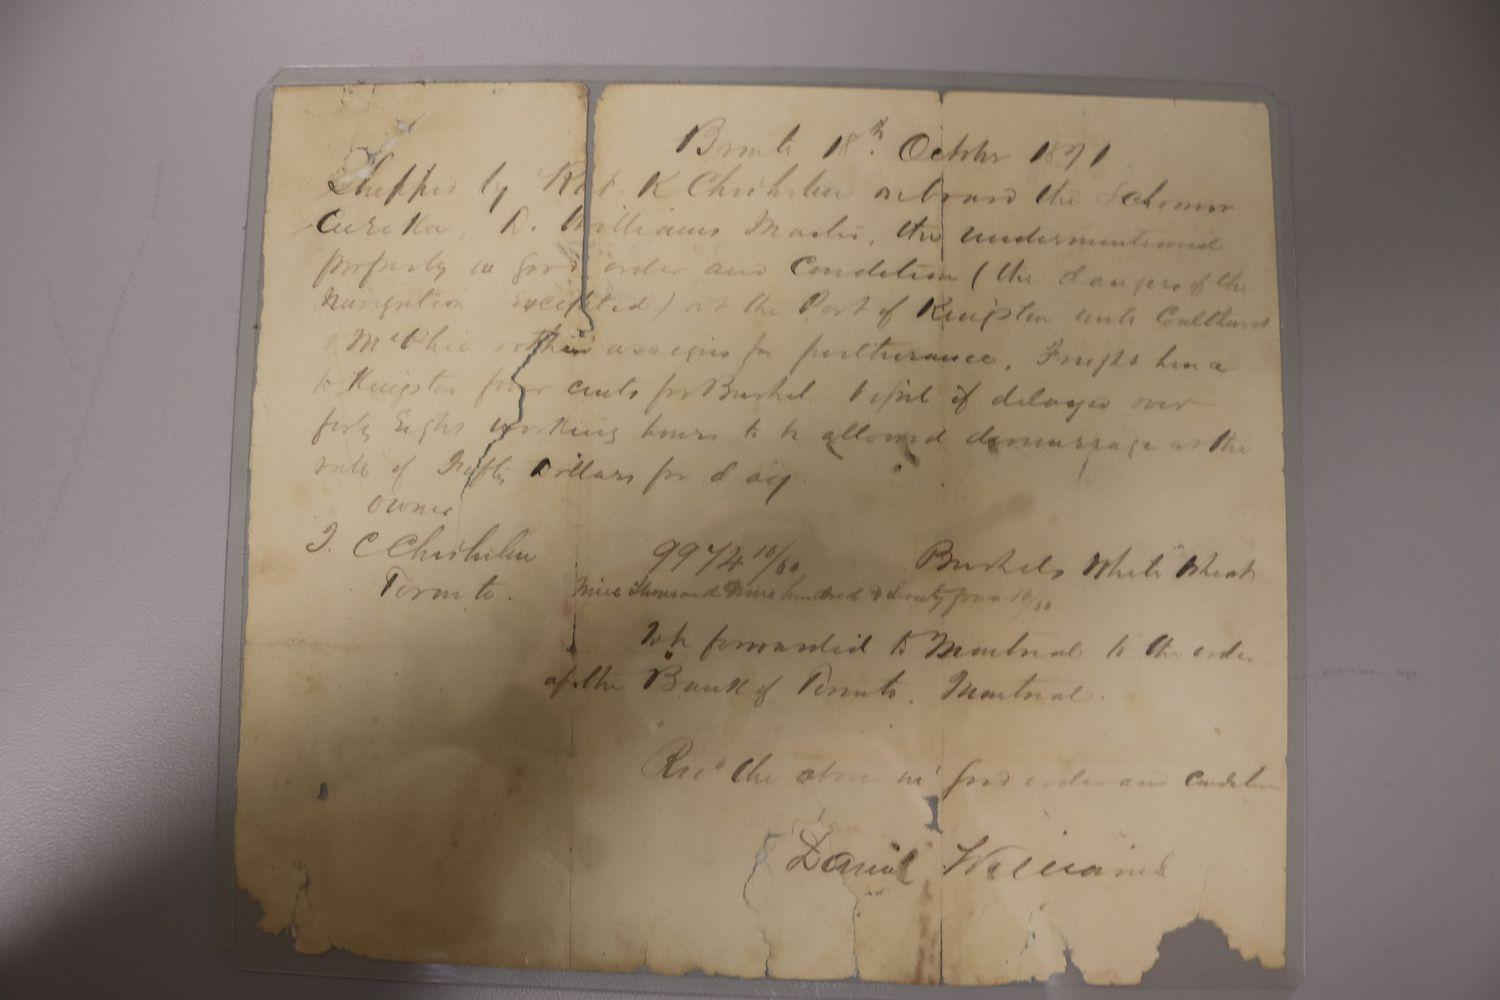 Bronte 18th. October 1871
Shipped by Rob. K Chisholm on board the Schooner
Eureka, D. Williams Master, the undermentioned
property in good order and Condition (the dangers of the
navigation excepted) at the Port of Kingston unto Coulthurst
& McPhie or their assigns for furtherance. Freight hence
to Kingston four cents per Bushel. Vessel if delayed over
forty Eight working hours to be allowed demurrage at the
rate of Fifty Dollars per day
Owner
T. C Chisholm
Toronto.
9974 10/60 Bushels White Wheat
Nine Thousand Nine hundred & Seventy four 10/60
To be forwarded to Montreal to the order
of the Bank of Toronto, Montreal.
Recd the above in good order and Condition
Daniel Williams